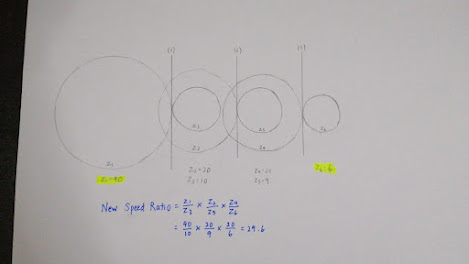 Z1
Z3
Z2
Z5
Z4
Z6
Z1 = 40
Z2 = 20
Z3 = 10
Z4 = 20
Z5 = 9
Z6 = 6
New Speed Ratio = Z1/Z3 × Z2/Z5 × Z4/Z6
= 40/10 × 20/9 × 20/6 = 29.6